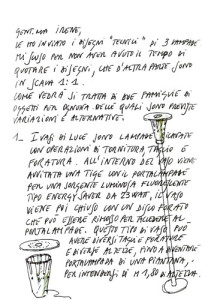 GENT.MA IRENE,
LE HO INVIATO I DISEGNI "TECNICI" DI 3 LAMPADE.
MI SCUSO PER NON AVER AVUTO IL TEMPO DI
QUOTARE I DISEGNI, CHE D'ALTRA PARTE SONO
IN SCALA 1:1.
COME VEDRÀ SI TRATTA DI DUE FAMIGLIE DI
OGGETTI PER OGNUNA DELLE QUALI SONO PREVISTE
VARIAZIONI E ALTERNATIVE.
1. I VASI DI LUCE SONO LAMPADE
CON OPERAZIONI DI TORNITURA TAGLIO E
FORATURA. ALL'INTERNO DEL VASO VIENE
AVVITATA UNA TIGE CON IL PORTALAMPADE
PER UNA SORGENTE LUMINOSA FLUORESCENTE
TIPO ENERGY SAVER DA 23 WATT, IL VASO
VIENE POI CHIUSO CON UN DISCO FORATO
CHE PUÒ ESSERE RIMOSSO PER ACCEDERE AL
PORTALAMPADE. QUESTO TIPO DI VASO PUÒ
AVERE DIVERSI TAGLI E FORATURE
E DIVERSE ALTEZZE, FINO A DIVENTARE
PORTALAMPADA DI UNA PIANTANA,
PER INTENDERSI DI M 1,80 DI ALTEZZA.